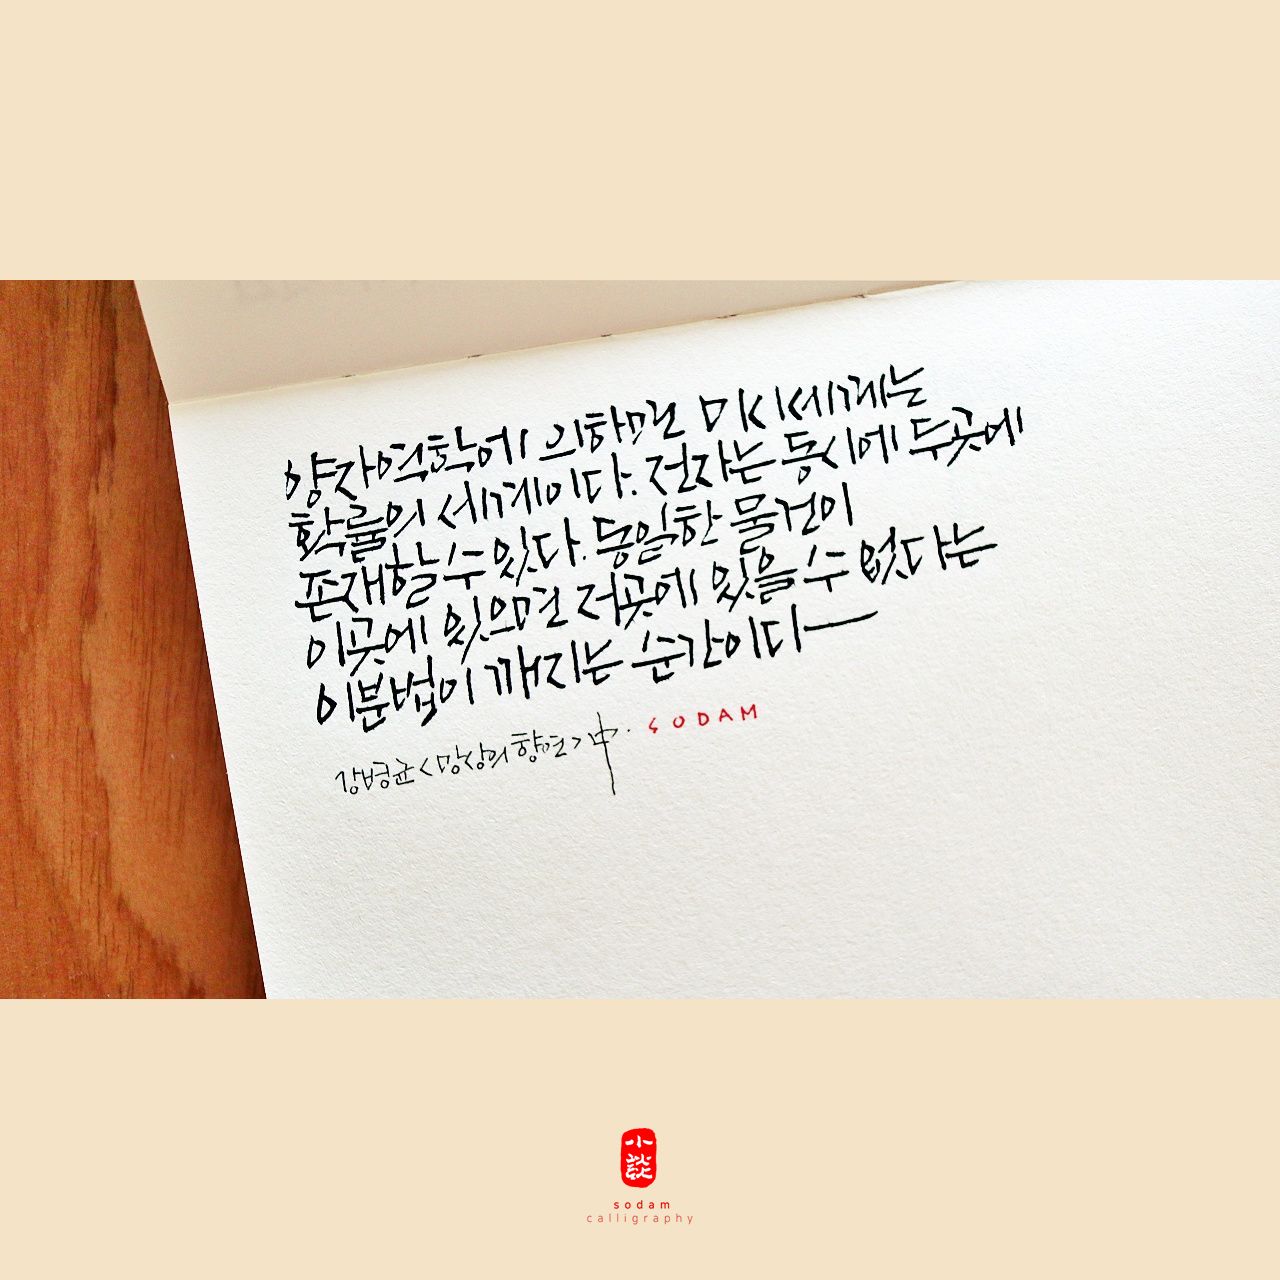 양자역학에 의하면 미시세계는
확률의 세계이다. 전자는 동시에 두곳에
존재할 수 있다. 동일한 물건이
이곳에 있으면 저곳에 있을 수 없다는
이분법이 깨지는 순간이다
강병균 <망상의 향연> 中. SODAM
小談
sodam
calligraphy